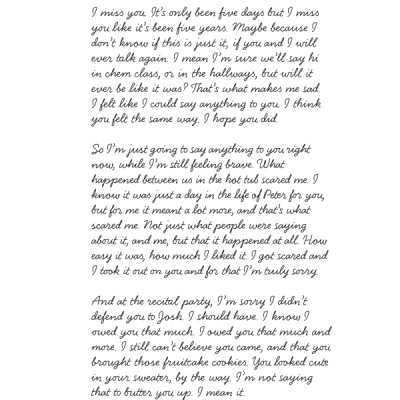 I miss you. It's only been five days but I miss
you like it's been five years. Maybe because I
don't know if this is just it, if you and I will
ever talk again. I mean I'm sure we'll say hi
in chem class, or in the hallways, but will it
ever be like it was? That's what makes me sad.
I felt like I could say anything to you. I think
you felt the same way. I hope you did.
So I'm just going to say anything to you right
now, while I'm still feeling brave. What
happened between us in the hot tub scared me. I
know it was just a day in the life of Peter for you,
but for me it meant a lot more, and that's what
scared me. Not just what people were saying
about it, and me, but that it happened at all. How
easy it was, how much I liked it. I got scared and
I took it out on you and for that I'm truly sorry.
And at the recital party, I'm sorry I didn't
defend you to Josh. I should have. I know I
owed you that much. I owed you that much and
more. I still can't believe you came, and that you
brought those fruitcake cookies. You looked cute
in your sweater, by the way. I'm not saying
that to butter you up. I mean it.